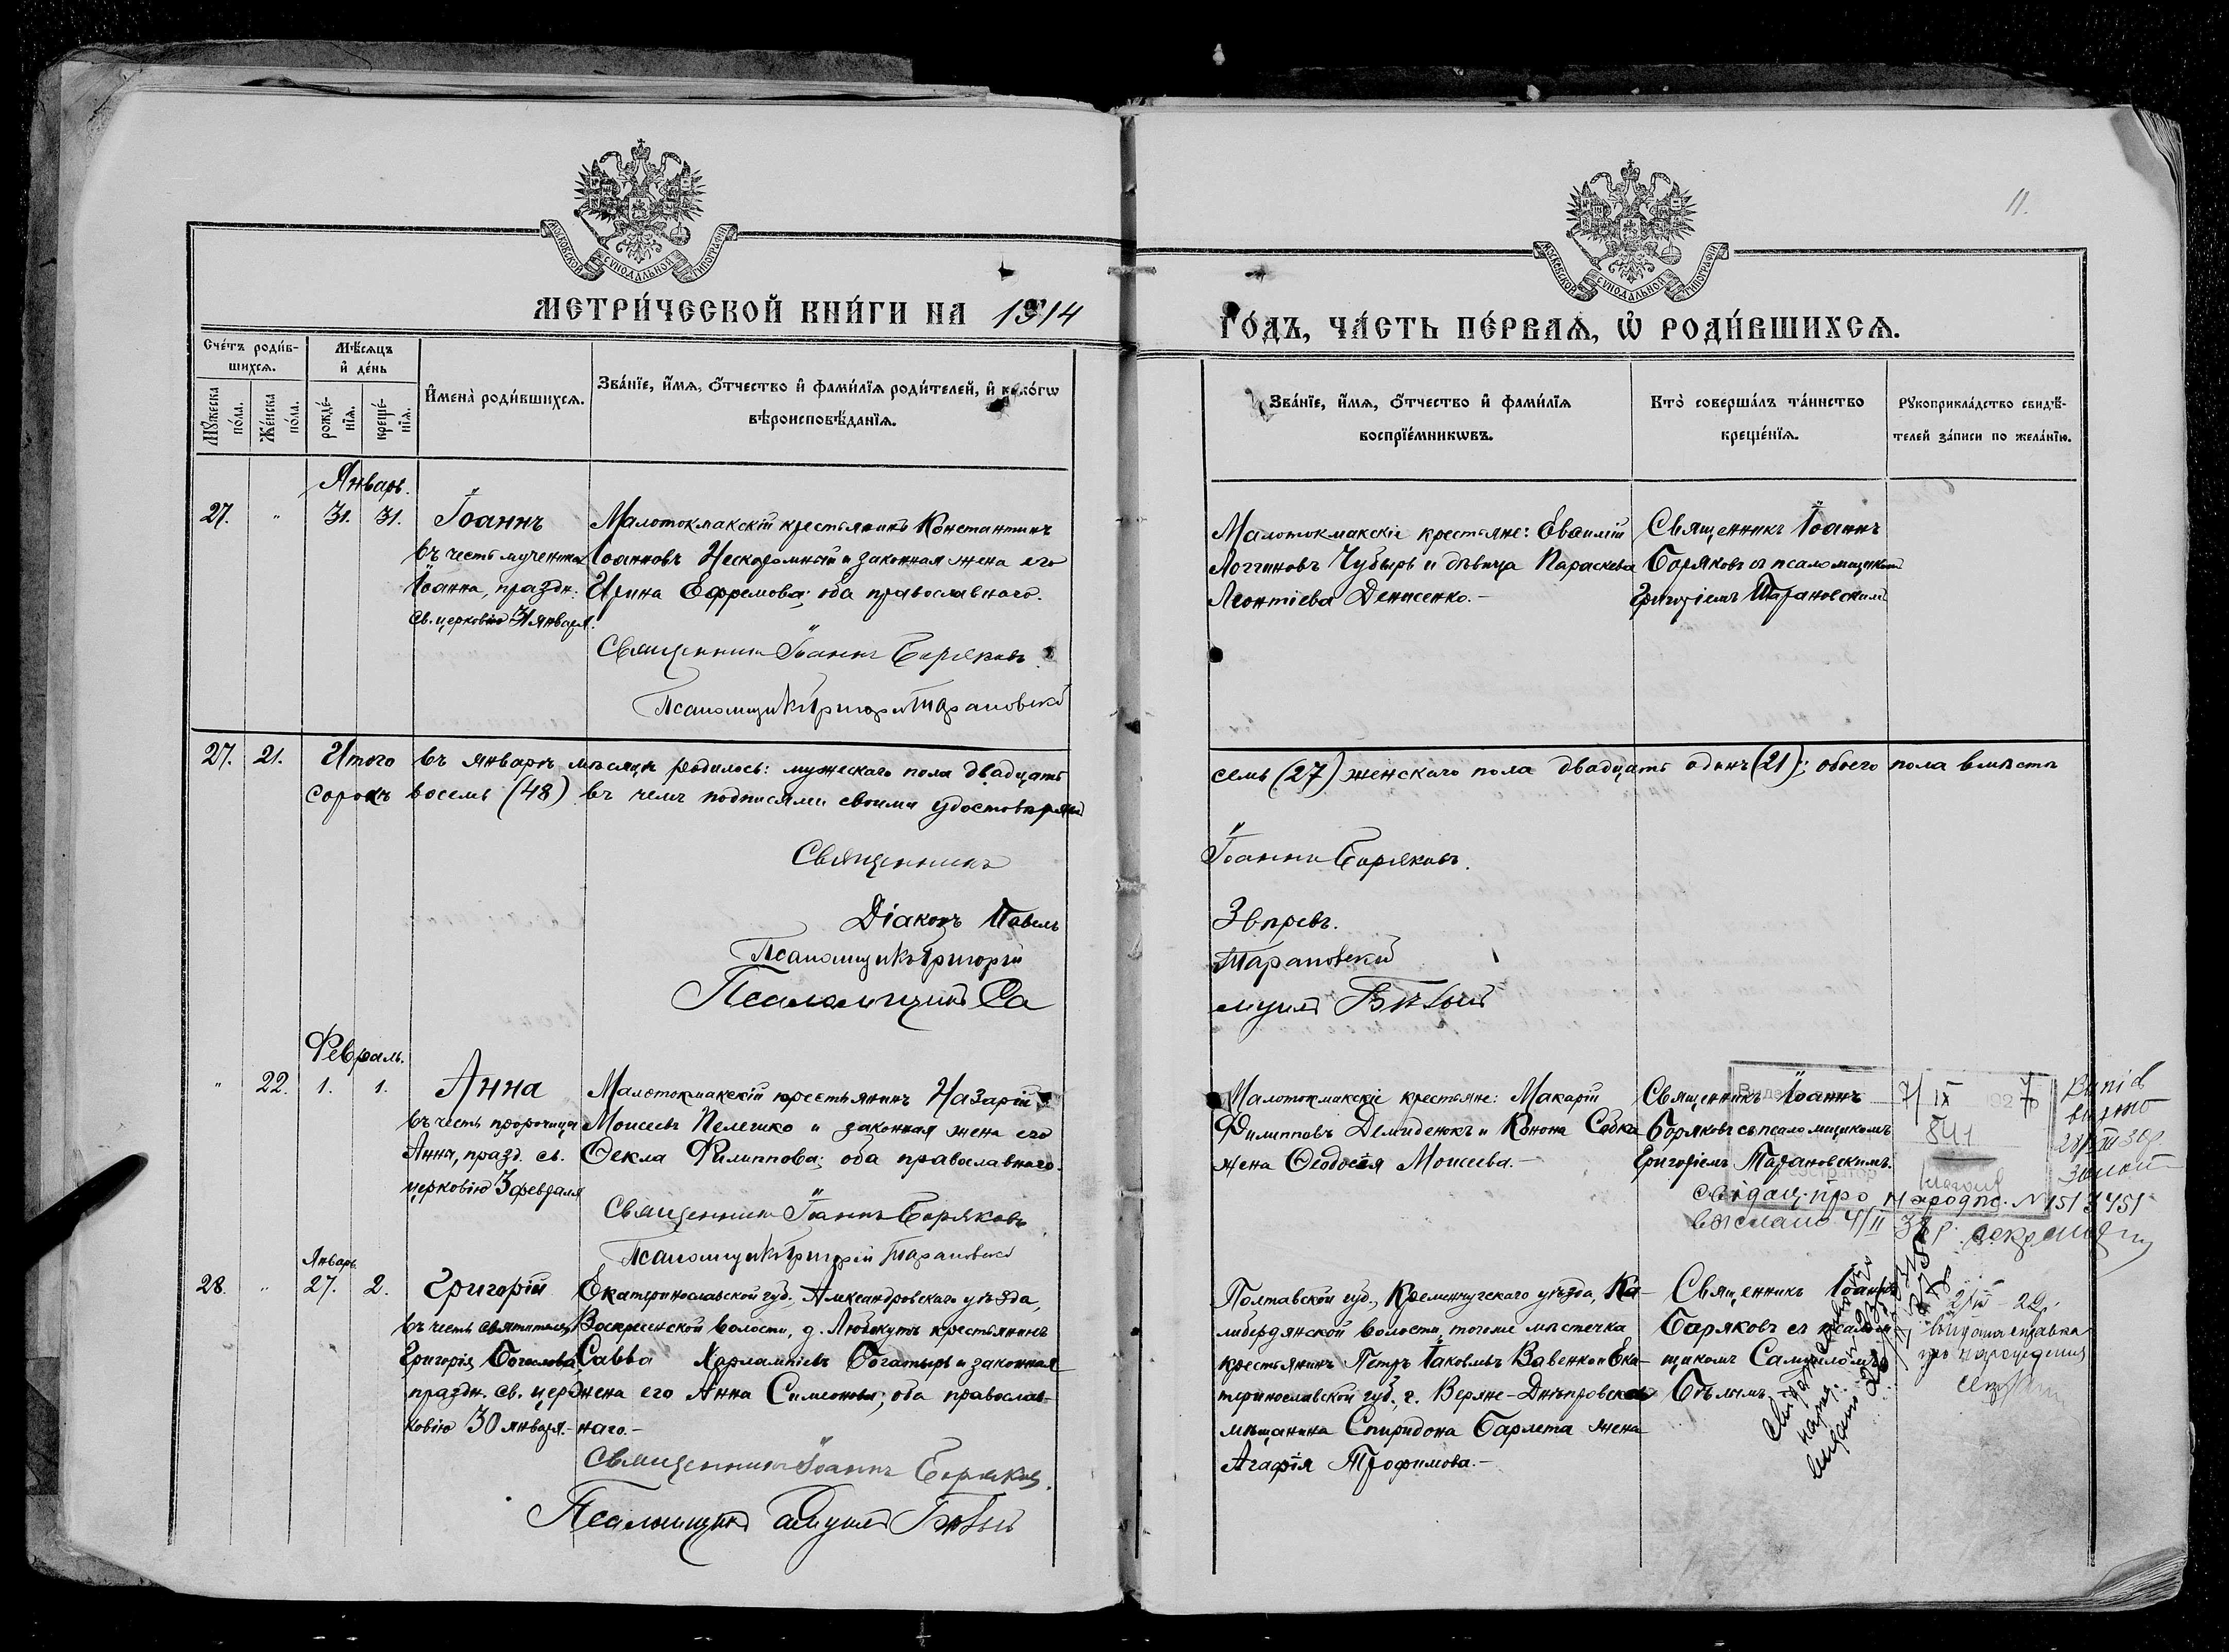 11.
МОСКОВСКОЙ СѴНОДАЛЬНОЙ ТИПОГРАФІИ
МОСКОВСКОЙ СѴНОДАЛЬНОЙ ТИПОГРАФІИ
МЕТРИ́ЧЕСКОЙ КНИ́ГИ НА 1914
ГО́ДЪ, ЧА́СТЬ ПЕ́РВАѦ, Ѡ҆ РОДИ́ВШИХСѦ.
Сче́тъ роди́в-
шихсѧ.
Мꙋ́жеска по́ла.
Же́нска по́ла.
Мѣ́сѧцъ
и҆ де́нь
рожде́-
нїѧ.
креще́-
нїѧ.
И҆мена̀ роди́вшихсѧ.
Зва́нїе, и҆́мѧ, ѻ҆́тчество и҆ фами́лїѧ роди́телей, и҆ како́гѡ
вѣроисповѣ́данїѧ.
Зва́нїе, и҆́мѧ, ѻ҆́тчество и҆ фами́лїѧ
воспрїе́мникѡвъ.
Кто̀ соверша́лъ та́инство
креще́нїѧ.
Рꙋкоприкла́дство свидѣ́-
телей за́писи по жела́нїю.
Январь.
27. " 31. 31. Іоаннъ
въ честь мученика
Іоанна, праздн.
св. церковію 31 января.
Малотокмакскій крестьянинъ Константинъ
Іоанновъ Нескоромный и законная жена его
Ирина Ефремова; оба православнаго.
Священникъ Іоаннъ Боряковъ.
Псаломщикъ Григорій Тарановскій
Малотокмакскіе крестьяне: Евѳимій
Логгиновъ Чубырь и дѣвица Параскева
Леонтіева Денисенко.-
Священникъ Іоаннъ
Боряковъ съ псаломщикомъ
Григоріемъ Тарановскимъ
27. 21. Итого въ январѣ мѣсяцѣ родилось: мужескаго пола двадцать
семь (27) женскаго пола двадцать одинъ (21); обоего пола вмѣстѣ
сорокъ восемь (48) въ чемъ подписями своими удостовѣряемъ
Священникъ Іоаннъ Боряковъ.
Діаконъ Павелъ Звѣревъ.
Псаломщикъ Григорій Тарановскій
Псаломщикъ Самуилъ Бѣлый
Февраль.
" 22. 1. 1. Анна
въ честь пророчицы
Анны, празд. св.
церковію 3 февраля
Малотокмакскій крестьянинъ Назарій
Моисеевъ Пелешко и законная жена его
Ѳекла Филиппова; оба православнаго.
Священникъ Іоаннъ Боряковъ
Псаломщикъ Григорій Тарановскій
Малотокмакскіе крестьяне: Макарій
Филипповъ Демиденокъ и Конона Собка
жена Ѳеодосія Моисеева.-
Священникъ Іоаннъ
Боряковъ съ псаломщикомъ
Григоріемъ Тарановскимъ.
7/IX 1927
841
Январь
28. " 27. 2. Григорій
въ честь святителя
Григорія Богослова
праздн. св. цер-
ковію 30 января.-
Екатеринославской губ., Александровскаго уѣзда,
Воскресенской волости, д. Любокутъ крестьянинъ
Савва Харлампіевъ Богатырь и законная
жена его Анна Симеонова; оба православ-
наго.-
Священникъ Іоаннъ Боряковъ.
Псаломщикъ Самуилъ Бѣлый
Полтавской губ., Кременчугскаго уѣзда, Ка-
либердянской волости, тогоже мѣстечка
крестьянинъ Петръ Іаковлевъ Вавенко и Ека-
теринославской губ., г. Верхне-Днѣпровска
мѣщанина Спиридона Барлета жена
Агафія Трофимова.-
Священникъ Іоаннъ
Боряковъ съ псалом-
щикомъ Самуиломъ
Бѣлымъ